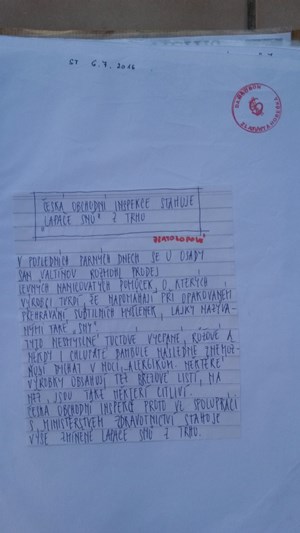 ST 6.7.2016
ČESKÁ OBCHODNÍ INSPEKCE STAHUJE
"LAPAČE SNŮ" Z TRHU
V POSLEDNÍCH PARNÝCH DNECH SE U OSADY
SAN VALTINOV ROZMOHL PRODEJ
LEVNÝCH NAMLCOVATÝCH POMŮCEK, O KTERÝCH
VÝROBCI TVRDÍ, ŽE NAPOMÁHAJÍ PŘI OPAKOVANÉM
PŘEHRÁVÁNÍ SUBTILNÍCH MYŠLENEK, LAJKY NAZÝVA
NÝMI TAKÉ "SNY".
TYTO NESMYSLNÉ TUCTOVÉ VYCPANÉ, RŮŽOVÉ A
NĚKDY I CHLUPATÉ BAMBULE NÁSLEDNĚ
MUSÍ ALERGIKŮM. NĚKTERÉ
VÝROBKY OBSAHUJÍ TÉŽ BŘEZOVÉ LISTÍ, NA
NĚŽ JSOU TAKÉ NĚKTEŘÍ CITLIVÍ.
ČESKÁ OBCHODNÍ INSPEKCE PROTO VE SPOLUPRÁCI
S MINISTERSTVEM ZDRAVOTNICTVÍ STAHUJE
VÝŠE ZMÍNĚNÉ LAPAČE SNŮ Z TRHU.